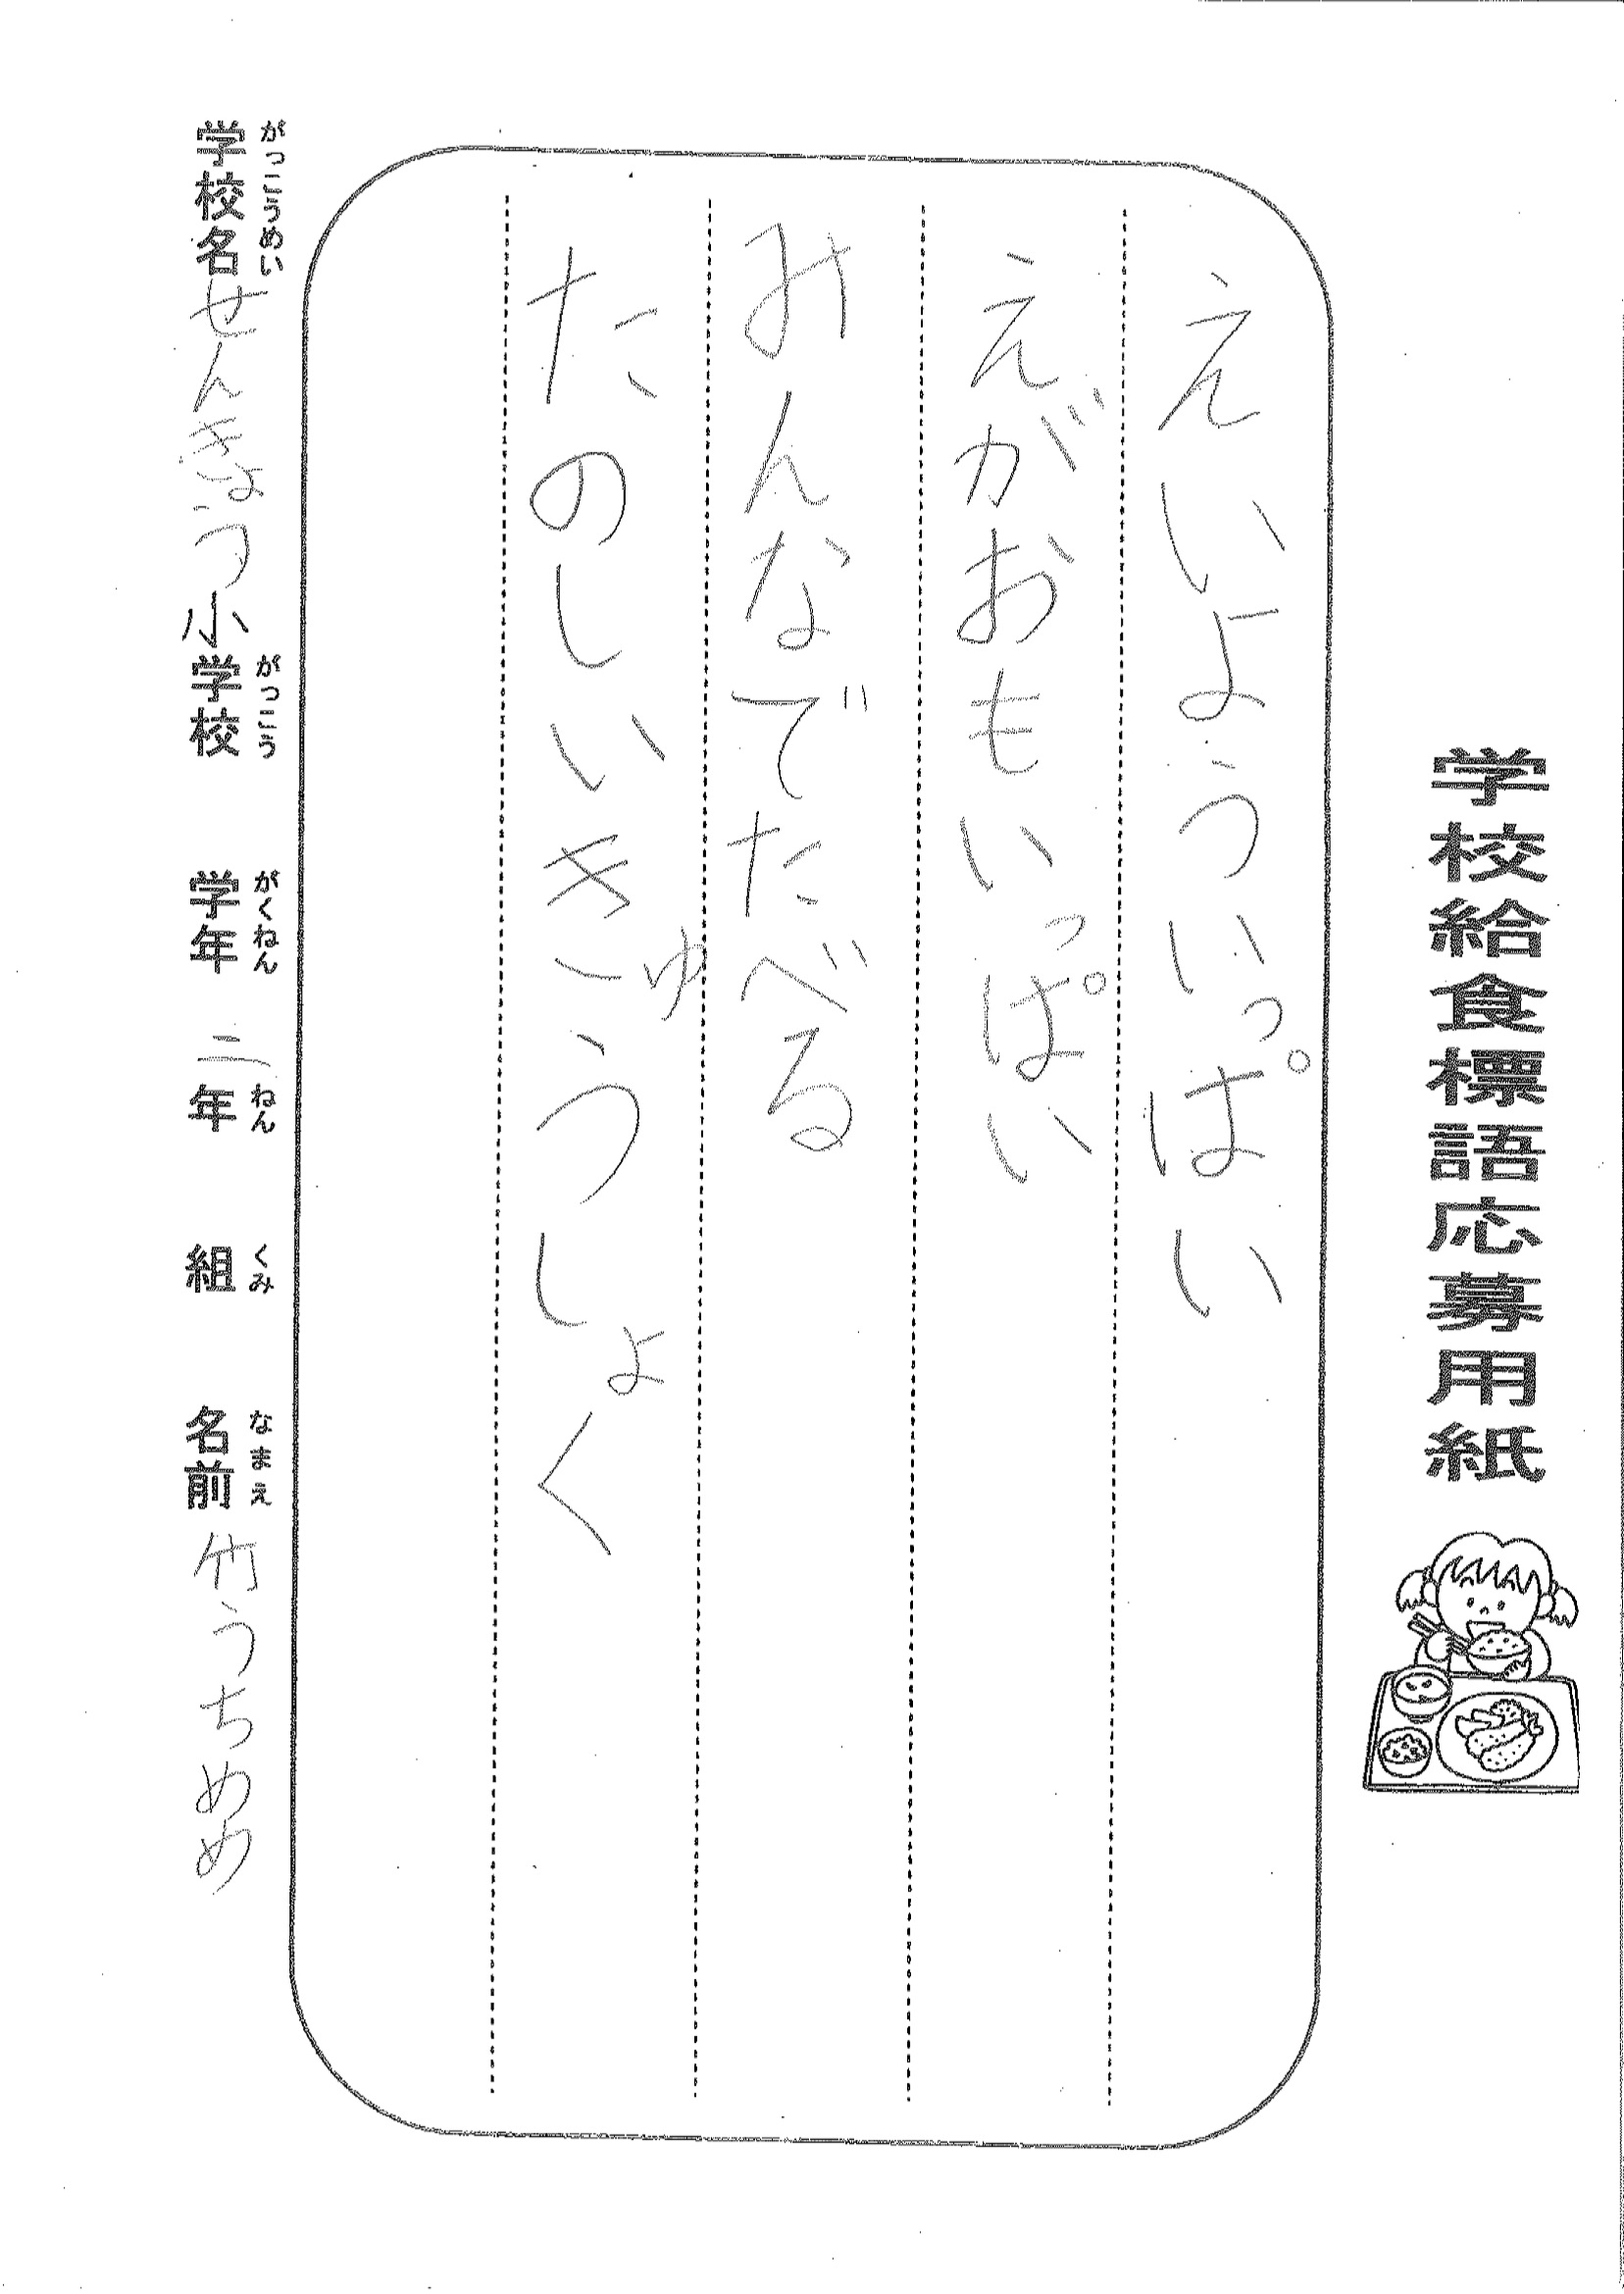 学校給食標語応募用紙
えいよういっぱい
えがおもいっぱい
みんなでたべる
たのしいきゅうしょく
がっこうめい がっこう がくねん ねん くみ なまえ
学校名 せんきょう小学校 学年 二年 組 名前 竹うちめめ